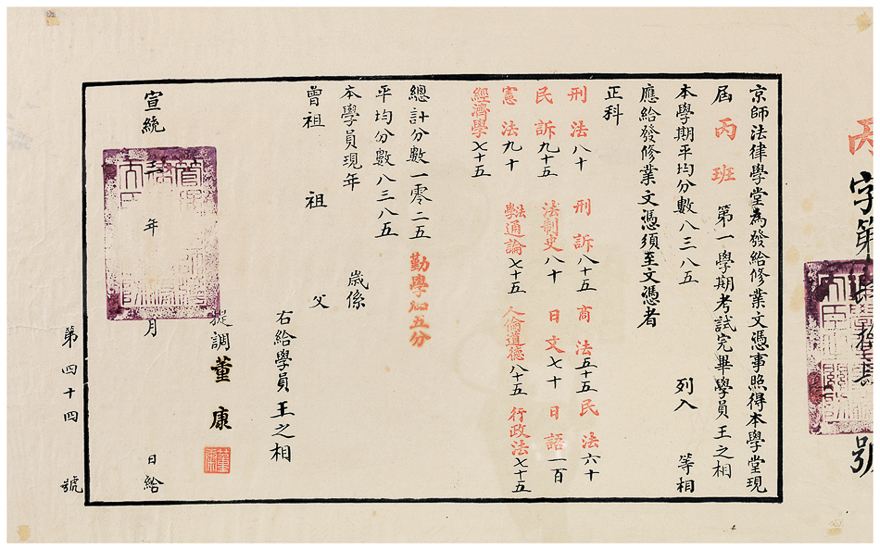 丙字第 號
京師法律學堂為發給修業文憑事照得本學堂現
屆丙班第一學期考試完畢學員王之相
本學期平均分數八三八五 列入 等相
應給發修業文憑須至文憑者
正科
刑法八十 刑訴八十五 商法五十五 民法六十
民訴九十五 法制史八十 日文七十 日語一百
憲法九十 法學通論七十五 人倫道德八十五 行政法七十五
經濟學七十五
總計分數一零二五 勤學加五分
平均分數八三八五
本學員現年 歲係
曾祖 祖 父
右給學員王之相
提調董康
董康
宣統 年 月 日給
第四十四號